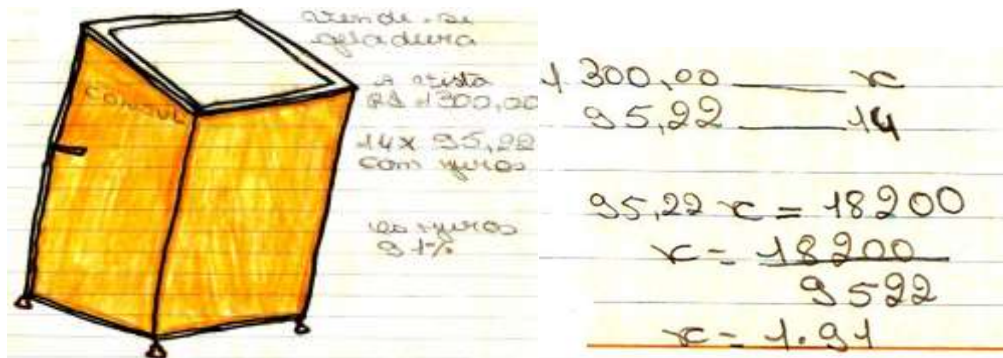 vende-se
geladeira
CONSUL
a vista
R$ 1300,00
14x 95,22
com juros
os juros
91%
1300,00 ____ x
95,22 ____ 14
95,22 x = 18200
x = 18200
9522
x = 1.91